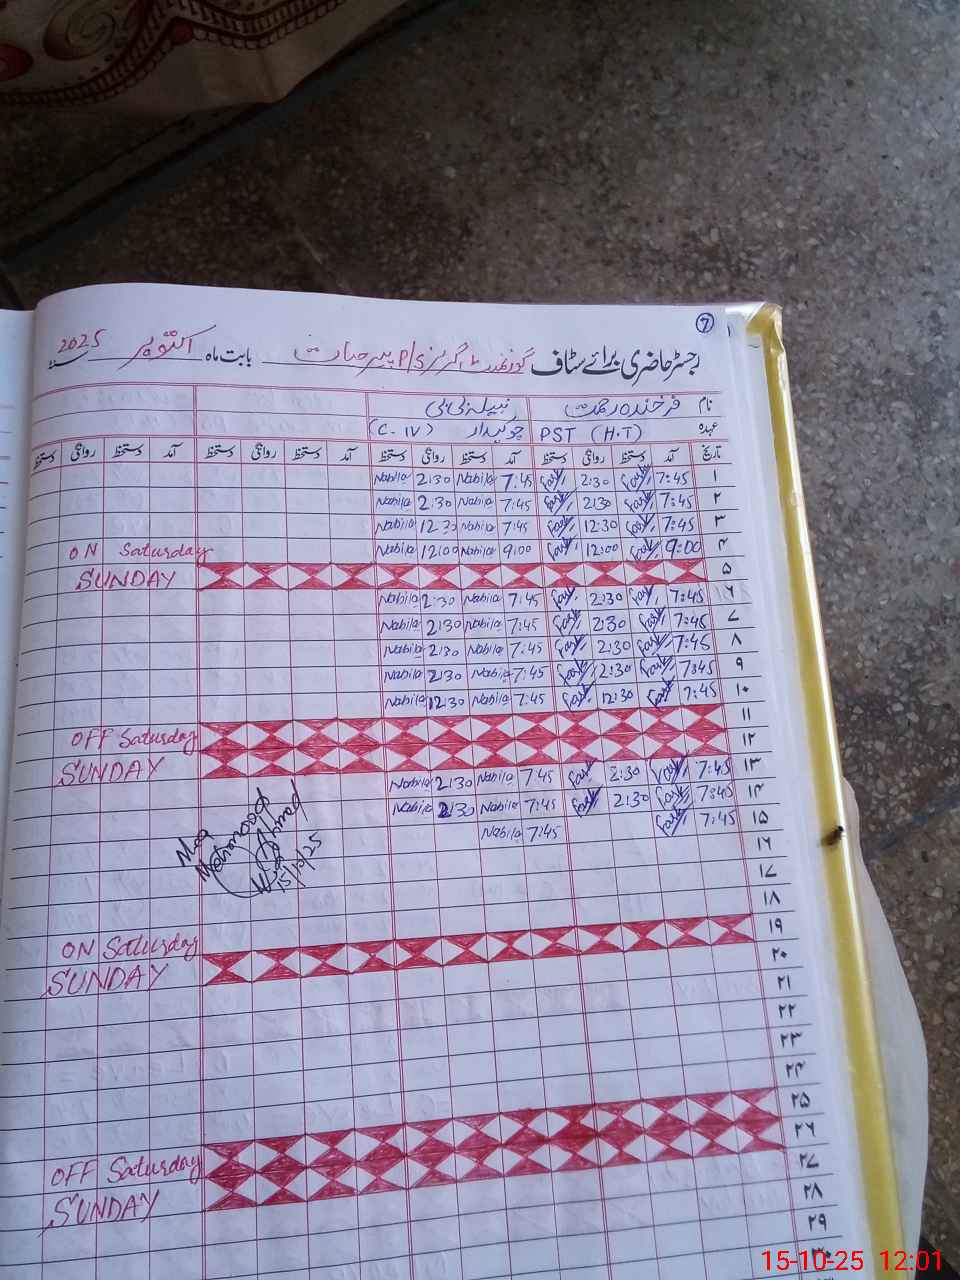 7
رجسٹر حاضری برائے سٹاف گورنمنٹ گرلز P/S پیر بابت ماہ اکتوبر سنہ 2025
نام فرخندہ رحمت نبیلہ بی بی
عہدہ PST (H.T) چوکیدار (C.IV)
تاریخ آمد دستخط روانگی دستخط آمد دستخط روانگی دستخط آمد دستخط روانگی دستخط آمد دستخط روانگی دستخط
۱ 7:45 2:30 7:45 Nabila 2:30 Nabila
۲ 7:45 2:30 7:45 Nabila 2:30 Nabila
۳ 7:45 12:30 7:45 Nabila 12:30 Nabila
۴ 9:00 12:00 9:00 Nabila 12:00 Nabila ON Saturday
۵ SUNDAY
۶ 7:45 2:30 7:45 Nabila 2:30 Nabila
۷ 7:45 2:30 7:45 Nabila 2:30 Nabila
۸ 7:45 2:30 7:45 Nabila 2:30 Nabila
۹ 7:45 2:30 7:45 Nabila 2:30 Nabila
۱۰ 7:45 12:30 7:45 Nabila 12:30 Nabila
۱۱ OFF Saturday
۱۲ SUNDAY
۱۳ 7:45 2:30 7:45 Nabila 2:30 Nabila
۱۴ 7:45 2:30 7:45 Nabila 2:30 Nabila
۱۵ 7:45 7:45 Nabila
Mahmood
15/10/25
۱۶
۱۷
۱۸ ON Saturday
۱۹ SUNDAY
۲۰
۲۱
۲۲
۲۳
۲۴
۲۵ OFF Saturday
۲۶ SUNDAY
۲۷
۲۸
۲۹
۳۰
15-10-25 12:01